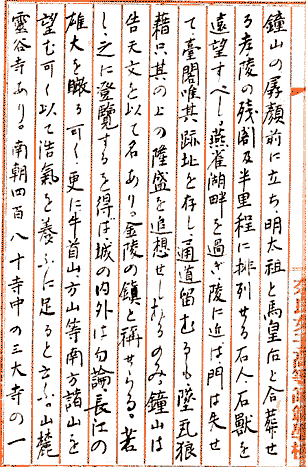 鐘山の孱顔前に立ち明太祖と馬皇后と合葬せ
る孝陵の残闕及半里程に排列せる石人石獣を
遠望すべし。燕雀湖畔を過ぎ陵に近は門は失せ
て臺閣唯其跡址を存し通道留むるも墜瓦狼
藉只其の上の隆盛を追想せしむるのみ。鐘山は
告天文を以て名あり。金陵の鎮と称せらる。若
し之に登覧するを得ば城の内外は勿論長江の
雄大を瞰る可く更に牛首山方山等南方諸山を
望む可く以て浩氣を養ふに足ると云ふ。山麓
靈谷寺あり。南朝四百八十寺中の三大寺の一